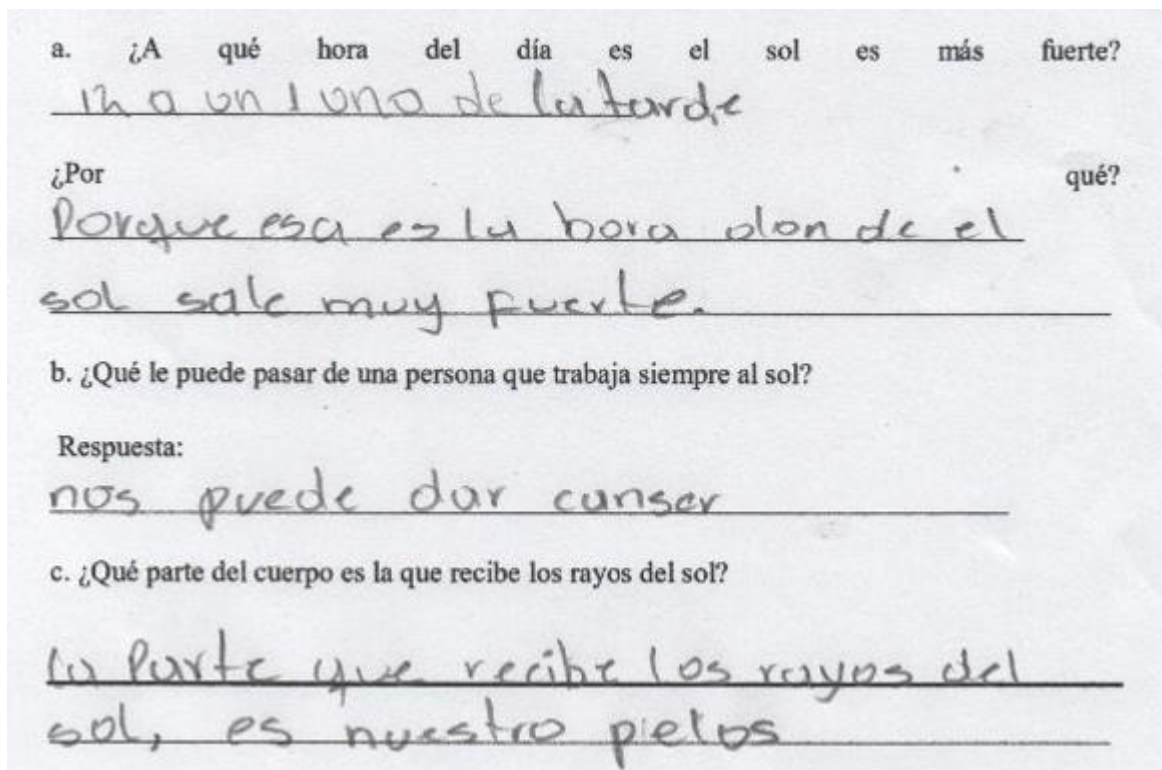 a. ¿A qué hora del día es el sol es más fuerte?
12 a un 1 uno de la tarde
¿Por qué?
Porque esa es la hora don de el
sol sale muy fuerte.
b. ¿Qué le puede pasar de una persona que trabaja siempre al sol?
Respuesta:
nos puede dar canser
c. ¿Qué parte del cuerpo es la que recibe los rayos del sol?
la Parte que recibe los rayos del
sol, es nuestro pielos